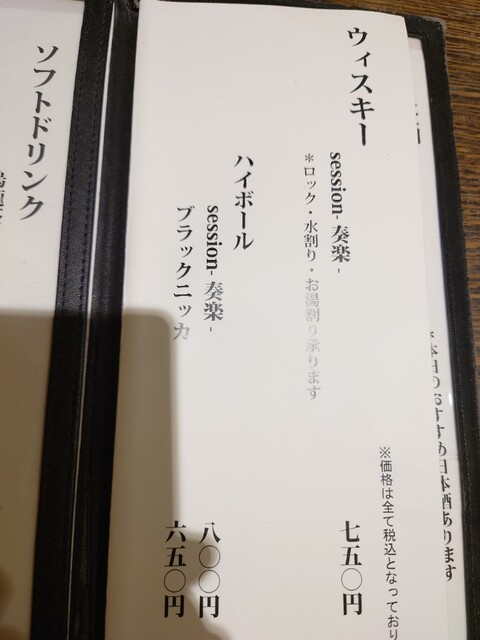 ウィスキー
session- 奏楽 -
七五〇円
＊ロック・水割り・お湯割り承ります
ハイボール
session- 奏楽 -
八〇〇円
ブラックニッカ
六五〇円
※価格は全て税込となっており
本日のおすすめ日本酒あります
ソフトドリンク